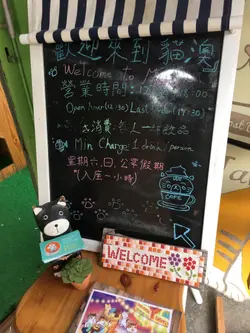 歡迎來到貓澳
Welcome To
營業時間:
Open hour (12:30) Last (19:30)
消費:各人一杯飲品
Min Charge: 1 drink / person
星期六,日,公眾假期
(入座一小時)
CAFE
WELCOME